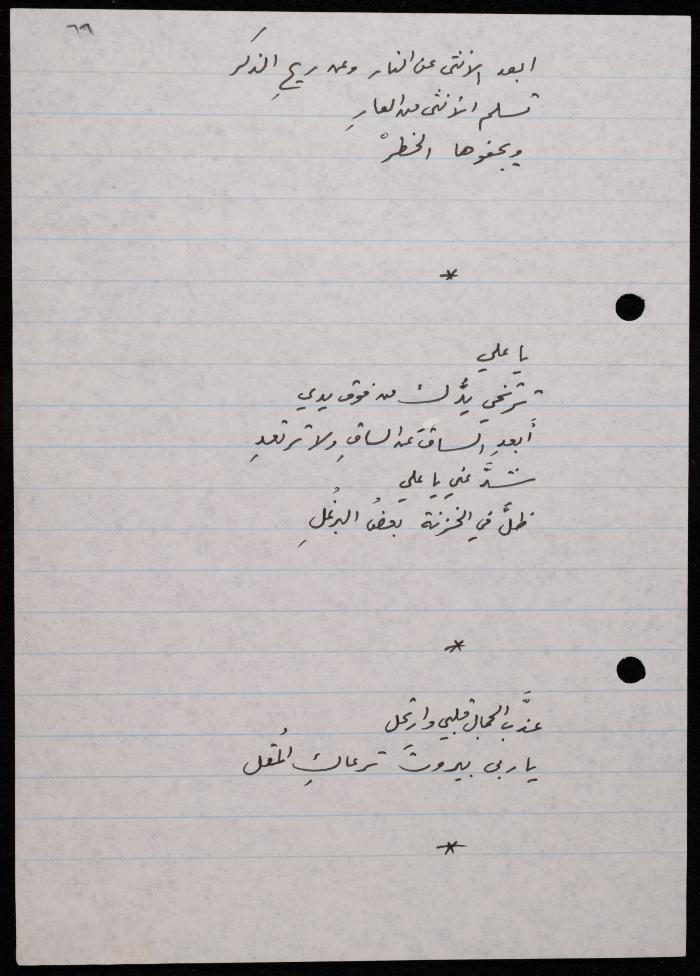 ٦٩
ابعد الأنثى عن النار وعن ريحِ الذكر
تسلم الأنثى من العارِ
ويجفوها الخطرْ
*
يا علي
ترتخي يدُّك من فوق يدي
أَبعدِ الساقَ عن الساقِ ولا ترتعدِ
شدَّ عني يا علي
ظلَّ في الخزنة بعضُ البرغُلِ
*
عذَّب الجمال قلبي وارتحل
يا ربى بيروتَ ترعاكِ المُقل
*